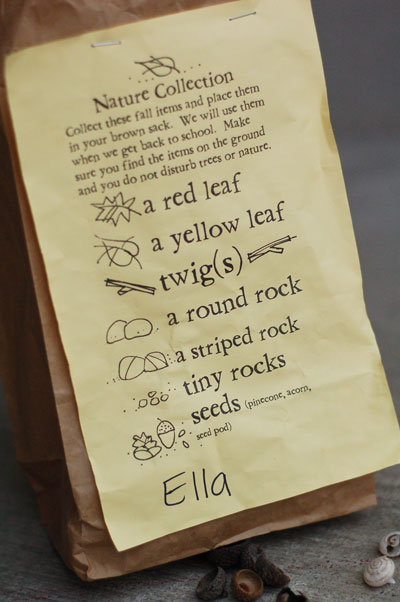 Nature Collection
Collect these fall items and place them
in your brown sack. We will use them
when we get back to school. Make
sure you find the items on the ground
and you do not disturb trees or nature.
a red leaf
a yellow leaf
twig(s)
a round rock
a striped rock
tiny rocks
seeds (pinecone, acorn,
seed pod)
Ella